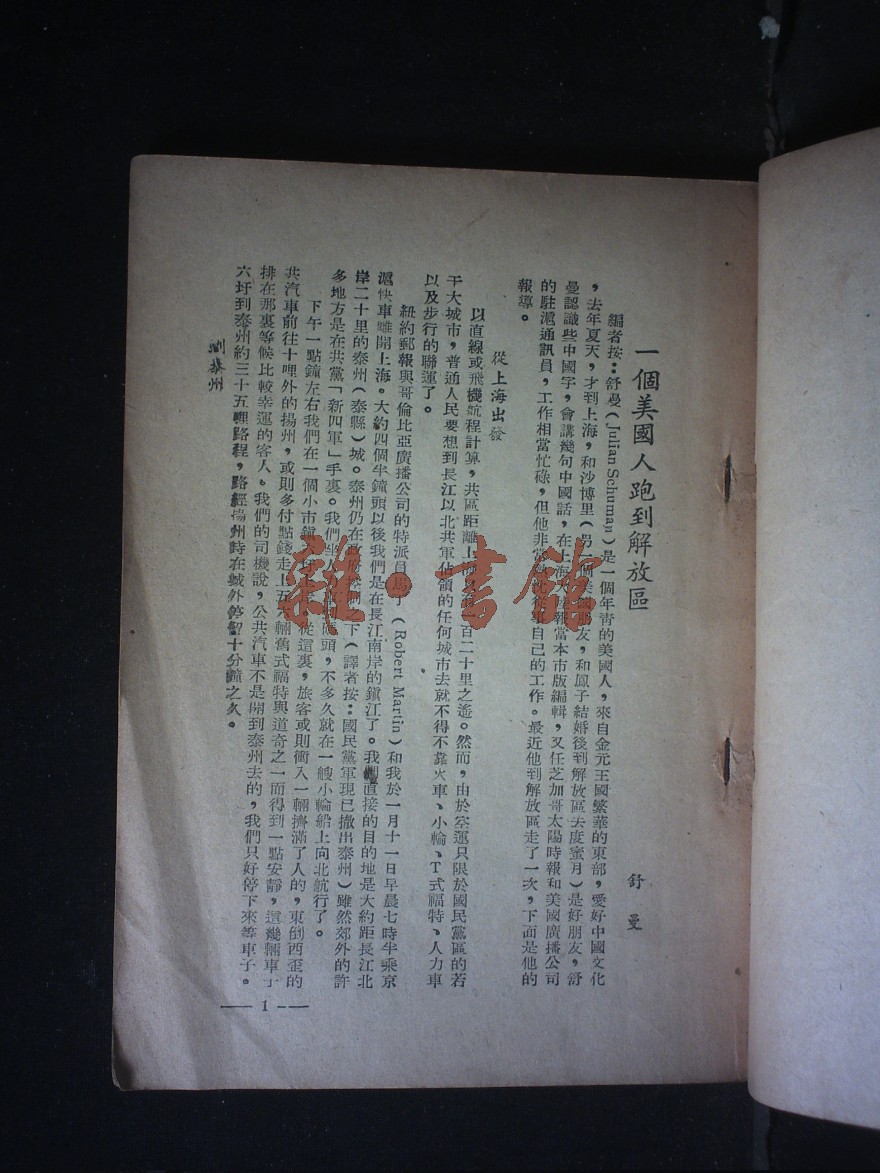 一個美國人跑到解放區
舒曼
編者按：舒曼（Julian Schuman）是一個年青的美國人，來自金元王國繁華的東部，愛好中國文化
，去年夏天，才到上海，和沙博里（另一個美國朋友，和鳳子結婚後到解放區去度蜜月）是好朋友，舒
曼認識些中國字，會講幾句中國話，在上海大陸報當本市版編輯，又任芝加哥太陽時報和美國廣播公司
的駐滬通訊員，工作相當忙碌，但他非常熱忱從事自己的工作。最近他到解放區走了一次，下面是他的
報導。
從上海出發
以直線或飛機航程計算，共區距離上海一百二十里之遙。然而，由於空運只限於國民黨區的若
干大城市，普通人民要想到長江以北共軍佔領的任何城市去就不得不靠火車、小輪、T式福特、人力車
以及步行的聯運了。
紐約郵報與哥倫比亞廣播公司的特派員馬丁（Robert Martin）和我於一月十一日早晨七時半乘京
滬快車離開上海。大約四個半鐘頭以後我們是在長江南岸的鎮江了。我們直接的目的地是大約距長江北
岸二十里的泰州（泰縣）城。泰州仍在政府控制下（譯者按：國民黨軍現已撤出泰州）雖然郊外的許
多地方是在共黨「新四軍」手裏。我們坐人力車到碼頭，不多久就在一艘小輪船上向北航行了。
下午一點鐘左右我們在一個小市鎮 從這裏，旅客或則衝入一輛擠滿了人的，東倒西歪的
共汽車前往十哩外的揚州，或則多付點錢走上五六輛舊式福特與道奇之一而得到一點安靜，這幾輛車子
排在那裏等候比較幸運的客人。我們的司機說，公共汽車不是開到泰州去的，我們只好停下來等車子。
六圩到泰州約三十五哩路程，路經揚州時在城外停留十分鐘之久。
到泰州
— 1 —
雜·書館